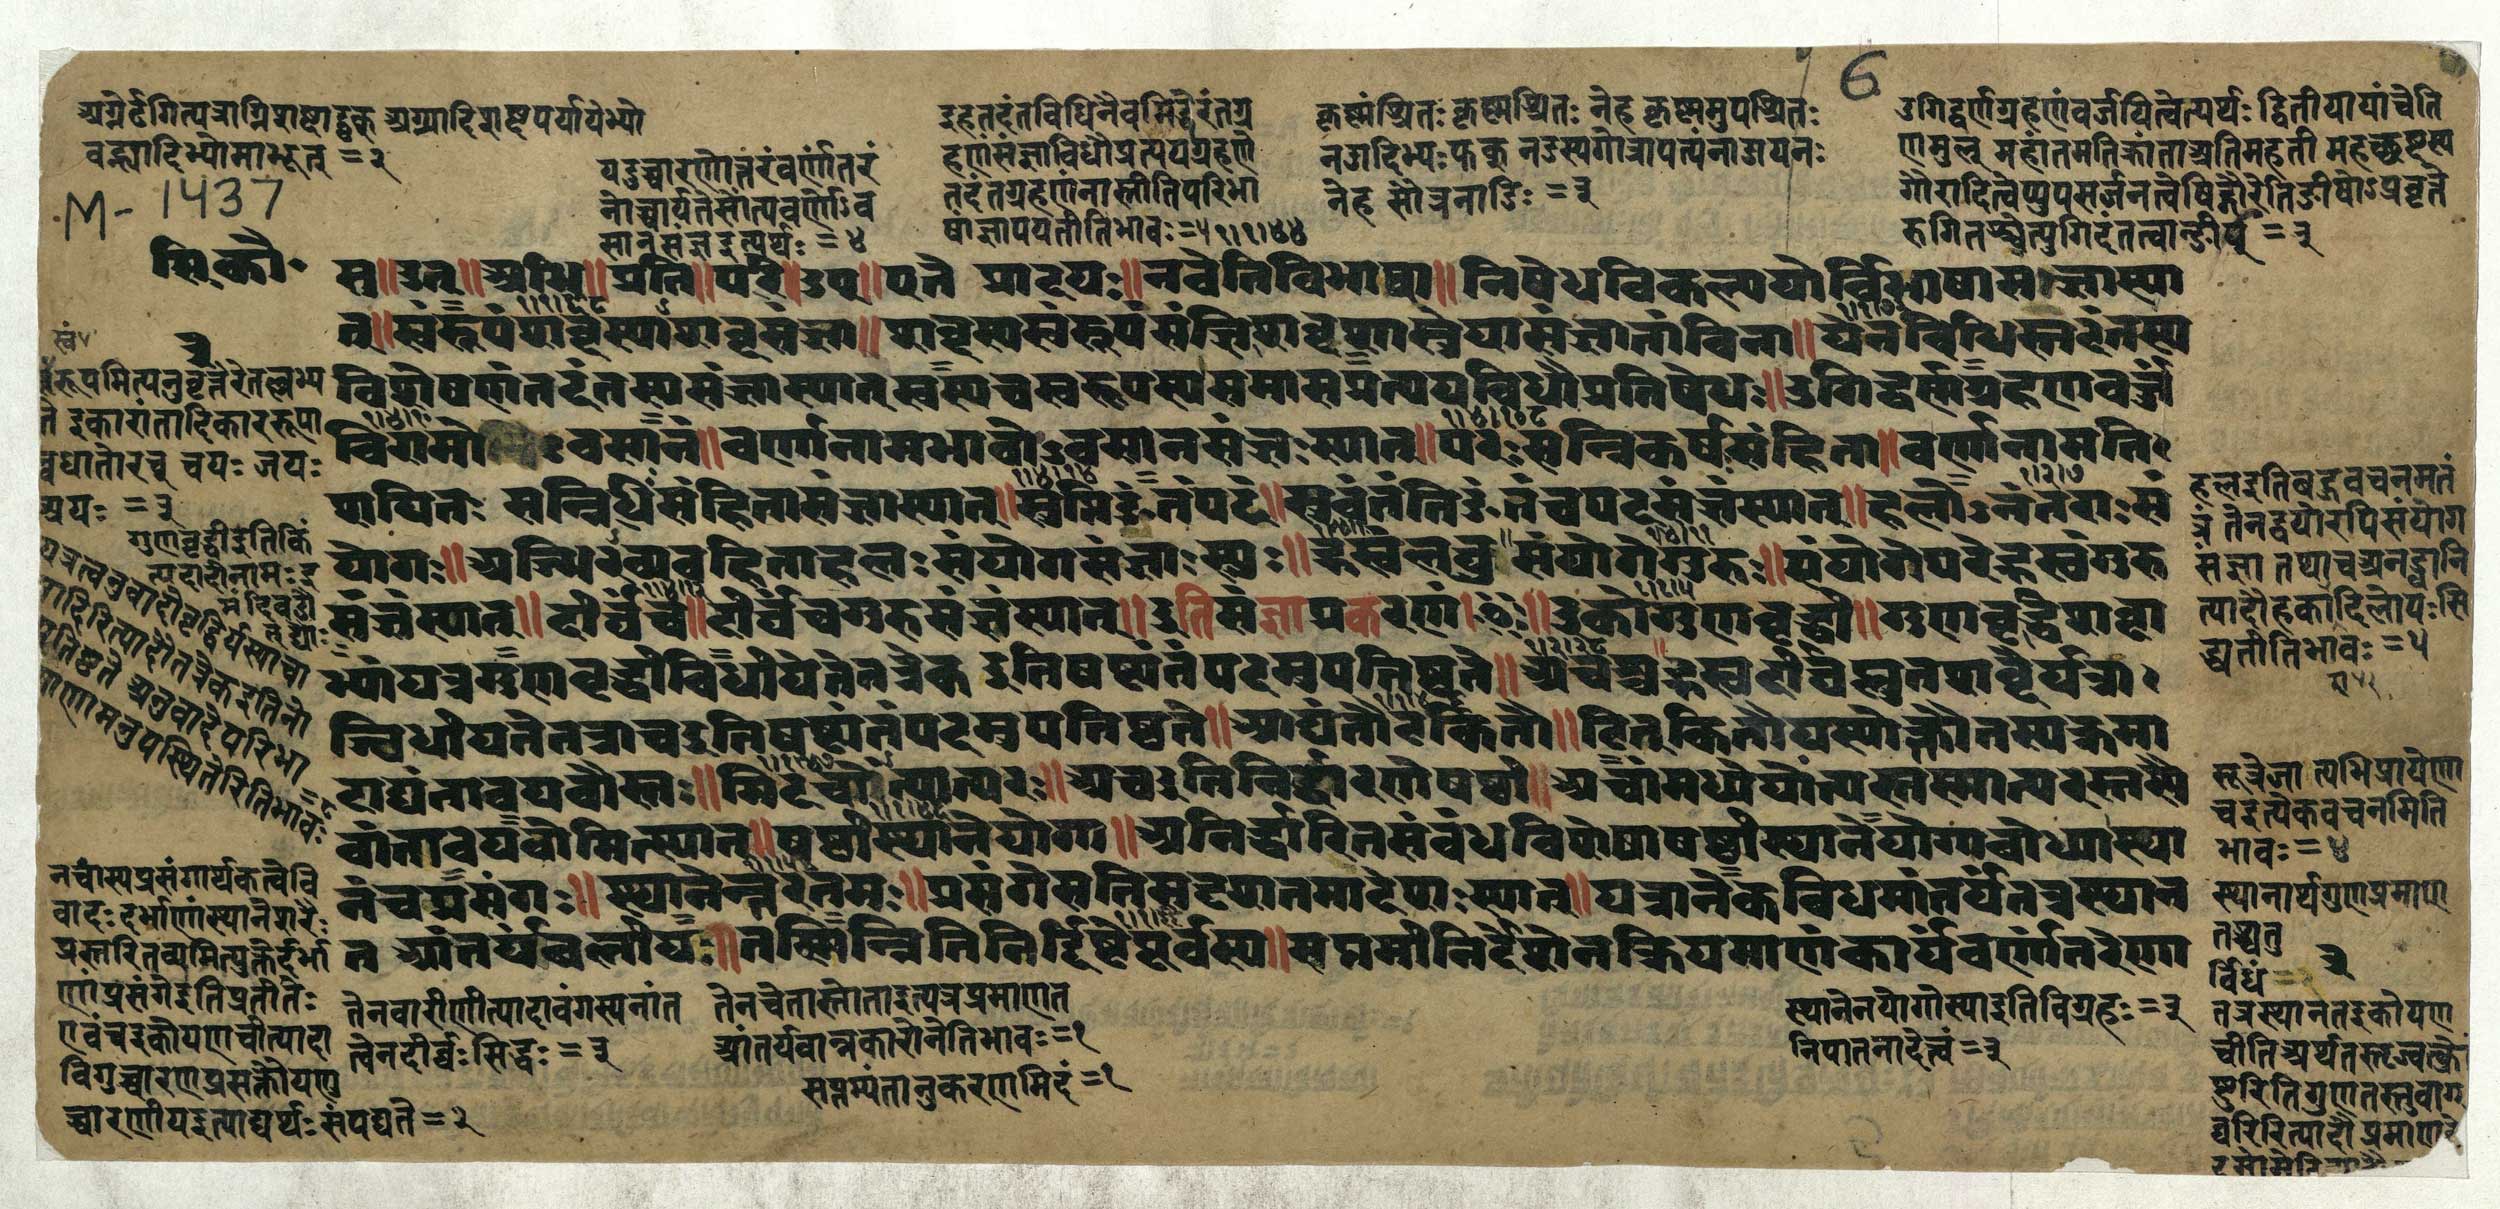 अग्नेर्ढगित्यत्राग्निशब्दाड्ढक् अग्न्यादिशब्दपर्यायेभ्यो
वह्न्यादिभ्योमाभूत् = ३
यदुच्चारणोत्तरंवर्णांतरं
नोच्चार्यतेसोंत्यवर्णोऽव
सानसंज्ञइत्यर्थः = ४
इहतदंतविधिनैव
हणंसंज्ञाविधौप्रत्ययग्रहणे
तदंतग्रहणंनास्तीतिपरिभा
षांज्ञापयतीतिभावः = ५ १।१।४४
कृष्णंश्रितः कृष्णश्रितः नेह कृष्णमुपश्रितः
नडादिभ्यः फक् नडस्यगोत्रापत्यंनाडायनः
नेह सौत्रनाडिः = ३
6
उगिद्वर्णग्रहणंवर्जयित्वेत्यर्थः द्वितीयायांचेति
णमुल् महांतमतिक्रांताअतिमहती
गौरादित्वेप्युपसर्जनत्वेषिद्गौरेतिङीषोऽप्रवृत्ते
रुगितश्चेत्युगिदंतत्वान्ङीप् = ३
M-1437
सि॰कौ॰
३
सु॥उत्॥अभि॥प्रति॥परि॥उप॥एते प्रादयः॥नवेतिविभाषा॥निषेधविकल्पयोर्विभाषासंज्ञास्या
त्॥स्वंरूपंशब्दस्याशब्दसंज्ञा॥शब्दस्यस्वंरूपंसंज्ञिशब्दशास्त्रेयासंज्ञातांविना॥येनविधिस्तदंतस्य
विशेषणंतदंतस्यसंज्ञास्यात्स्वस्यचस्वरूपस्यसमासप्रत्ययविधौप्रतिषेधः॥उगिद्वर्णग्रहणवर्ज्जं
विरामोऽवसानं॥वर्णानामभावोऽवसानसंज्ञःस्यात्॥परःसन्निकर्षःसंहिता॥वर्णानामति
शयितः सन्निधिःसंहितासंज्ञास्यात्॥सुप्तिङंतंपदं॥सुबंतंतिङंतंचपदसंज्ञंस्यात्॥हलोऽनंतराःसं
योगः॥अज्भिरव्यवहिताहलःसंयोगसंज्ञाःस्युः॥ह्रस्वंलघु॥संयोगेगुरु॥संयोगेपरेह्रस्वंगुरु
संज्ञंस्यात्॥दीर्घंच॥दीर्घंचगुरुसंज्ञंस्यात्॥इतिसंज्ञाप्रकरणं॥इकोगुणवृद्धी॥गुणवृद्धिशब्दा
भ्यांयत्रगुणवृद्धीविधीयेतेतत्रेकइतिषष्ठ्यंतंपदमुपतिष्ठते॥अचश्च॥ह्रस्वदीर्घप्लुतशब्दैर्यत्रा
ज्विधीयतेतत्राचइतिषष्ठ्यंतंपदमुपतिष्ठते॥आद्यंतौटकितौ॥टित्कितौयस्योक्तौतस्यक्रमा
दाद्यंतावयवौस्तः॥मिदचोंत्यात्परः॥अचइतिनिर्द्धारणेषष्ठी॥अचांमध्येयोंत्यस्तस्मात्परस्तस्यै
वांतावयवोमित्स्यात्॥षष्ठीस्थानेयोगा॥अनिर्द्धारितसंबंधविशेषाषष्ठीस्थानेयोगाबोध्यास्था
नंचप्रसंगः॥स्थानेन्तरतमः॥प्रसंगेसतिसदृशतमआदेशःस्यात्॥यत्रानेकविधमांतर्यंतत्रस्थान
त आंतर्यंबलीयः॥तस्मिन्नितिनिर्दिष्टेपूर्वस्य॥सप्तमीनिर्देशेनविधीयमाणंकार्यंवर्णांतरेणा
रूपमित्यनुवृत्तेरेतल्लभ्य
ते इकारांतादिकाररूपा
च्चधातोरच् चयः जयः
अयः = ३
गुणवृद्धीइतिकिं
त्यदादीनामः इ
यत्रत्वनुवादोवृद्धिर्यस्याचा
मादिरित्यादौतत्रेकइतिनो
पतिष्ठते अनुवादेपरिभा
षाणामनुपस्थितेरितिभावः = ६
नचास्यप्रसंगार्थकत्वेवि
वादः दर्भाणांस्थानेशरैः
प्रस्तरितव्यमित्युक्तेर्दर्भा
णांप्रसंगेइतिप्रतीतेः
एवंचइकोयणचीत्यादा
विगुच्चारणप्रसक्तौयणु
च्चारणीयइत्याद्यर्थः संपद्यते = २
हलइतिबहुवचनमतं
त्रं तेनद्वयोरपिसंयोग
संज्ञा तथाचअनड्वानि
त्यादौहकारादिलोपः सि
द्ध्यतीतिभावः = ५
सूत्रेजात्यभिप्रायेणा
चइत्येकवचनमिति
भावः = ४
स्थानार्थगुणप्रमाण
तश्चतु
र्विधं =
३
तत्रस्थानतइकोयण
चीति अर्थतस्तृज्वत्क्रो
ष्टुरिति गुणतस्तुवाग्घ
द्धरिरित्यादौ प्रमाण
तेनवारीणीत्यादावंगस्यनांत
त्वेनदीर्घः सिद्धः = ३
तेनचेतास्तोताइत्यत्रप्रमाणत
आंतर्यवान्नकारोनेतिभावः = १
सप्तम्यंतानुकरणमिदं = १
स्थानेनयोगोस्याइतिविग्रहः = ३
निपातनादेत्वं = ३